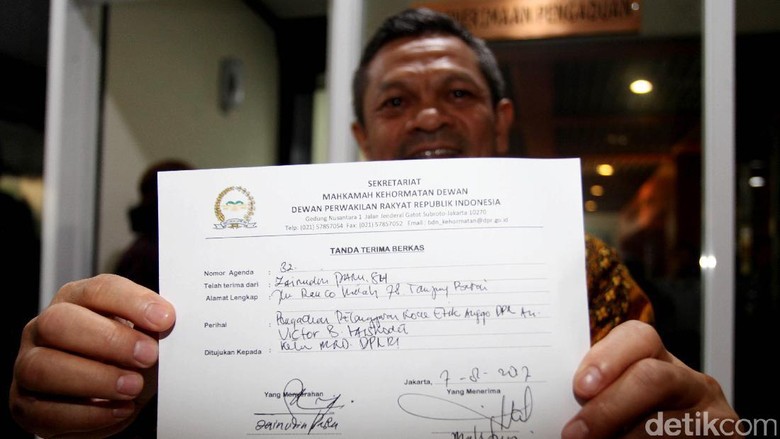 PENERIMAAN PENGADUAN
SEKRETARIAT
MAHKAMAH KEHORMATAN DEWAN
DEWAN PERWAKILAN RAKYAT REPUBLIK INDONESIA
Gedung Nusantara 1 Jalan Jenderal Gatot Subroto-Jakarta 10270
Telp: (021) 57857054 Fax: (021) 57857052 Email : bdn_kehormatan@dpr.go.id
TANDA TERIMA BERKAS
Nomor Agenda : 32.
Telah terima dari : Zainudin SH
Alamat Lengkap : Jln Ranco Indah 7B Tanjung Barat
Perihal : Pengaduan Pelanggaran Kode Etik Anggo DPR An.
Victor B. Laiskodat
Ditujukan Kepada : Ketu MKD. DPR RI
Jakarta, 7-8-2017
Yang Menyerahkan Yang Menerima
Zainudin
detikcom